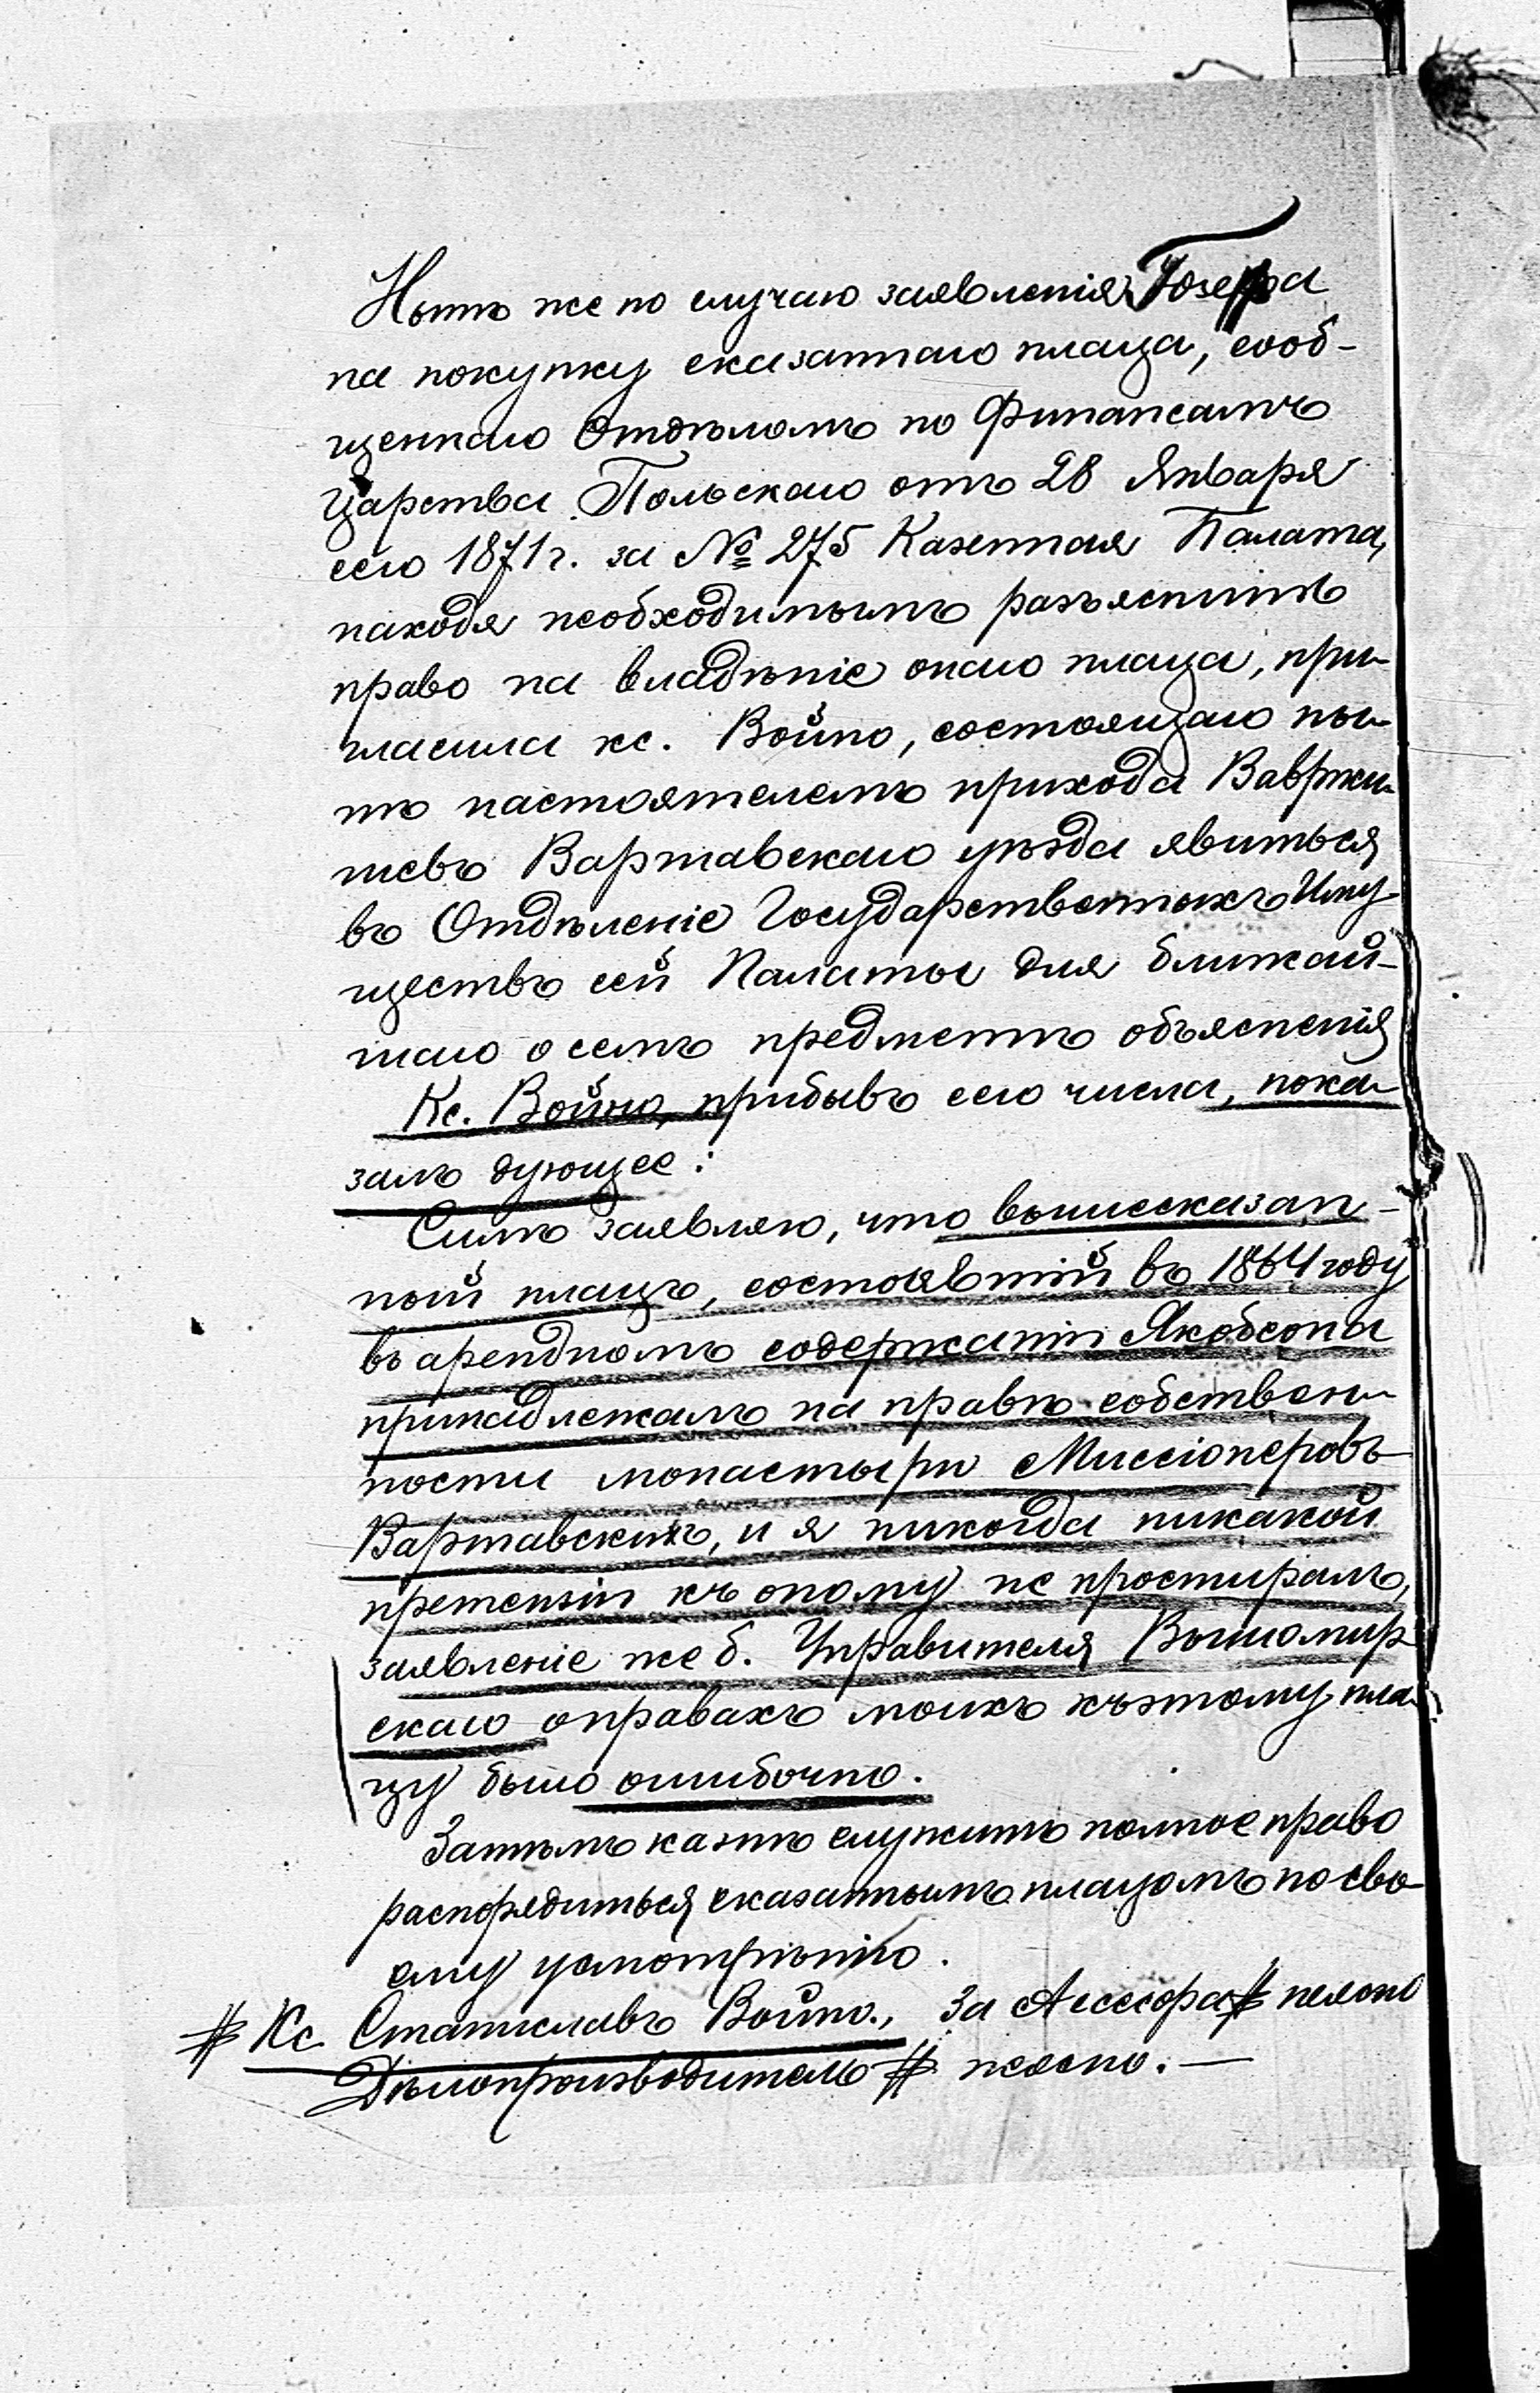 Нынѣ же по случаю заявленія Іозефа
на покупку сказаннаго плаца, сооб-
щеннаго Отдѣломъ по Финансамъ
Царства Польскаго отъ 28 Января
сего 1871 г. за № 275 Казенная Палата,
находя необходимымъ разъяснить
право на владѣніе онаго плаца, при-
гласила кс. Война, состоящаго ны-
нѣ настоятелемъ прихода Вавржи-
шевъ Варшавскаго уѣзда явиться
въ Отдѣленіе Государственныхъ Иму-
ществъ сей Палаты для ближай-
шаго о семъ предметѣ объясненія
Кс. Войно, прибывъ сего числа, пока-
залъ дующее:
Симъ заявляю, что вышесказан-
ный плацъ, состоявшій въ 1864 году
въ арендномъ содержаніи Якобсона
принадлежалъ на правѣ собствен-
ности монастыри Миссіонеровъ
Варшавскихъ, и я никогда никакой
претензіи къ оному не простиралъ,
заявленіе же б. Управителя
скаго о правахъ моихъ къ этому пла-
цу было ошибочно.
Затѣмъ казнѣ служитъ полное право
распорядиться сказаннымъ плацомъ по сво-
ему усмотрѣнію.
# Кс. Станиславъ Войно., За Ассесора # неясно
Дѣлопроизводитель # неясно. —